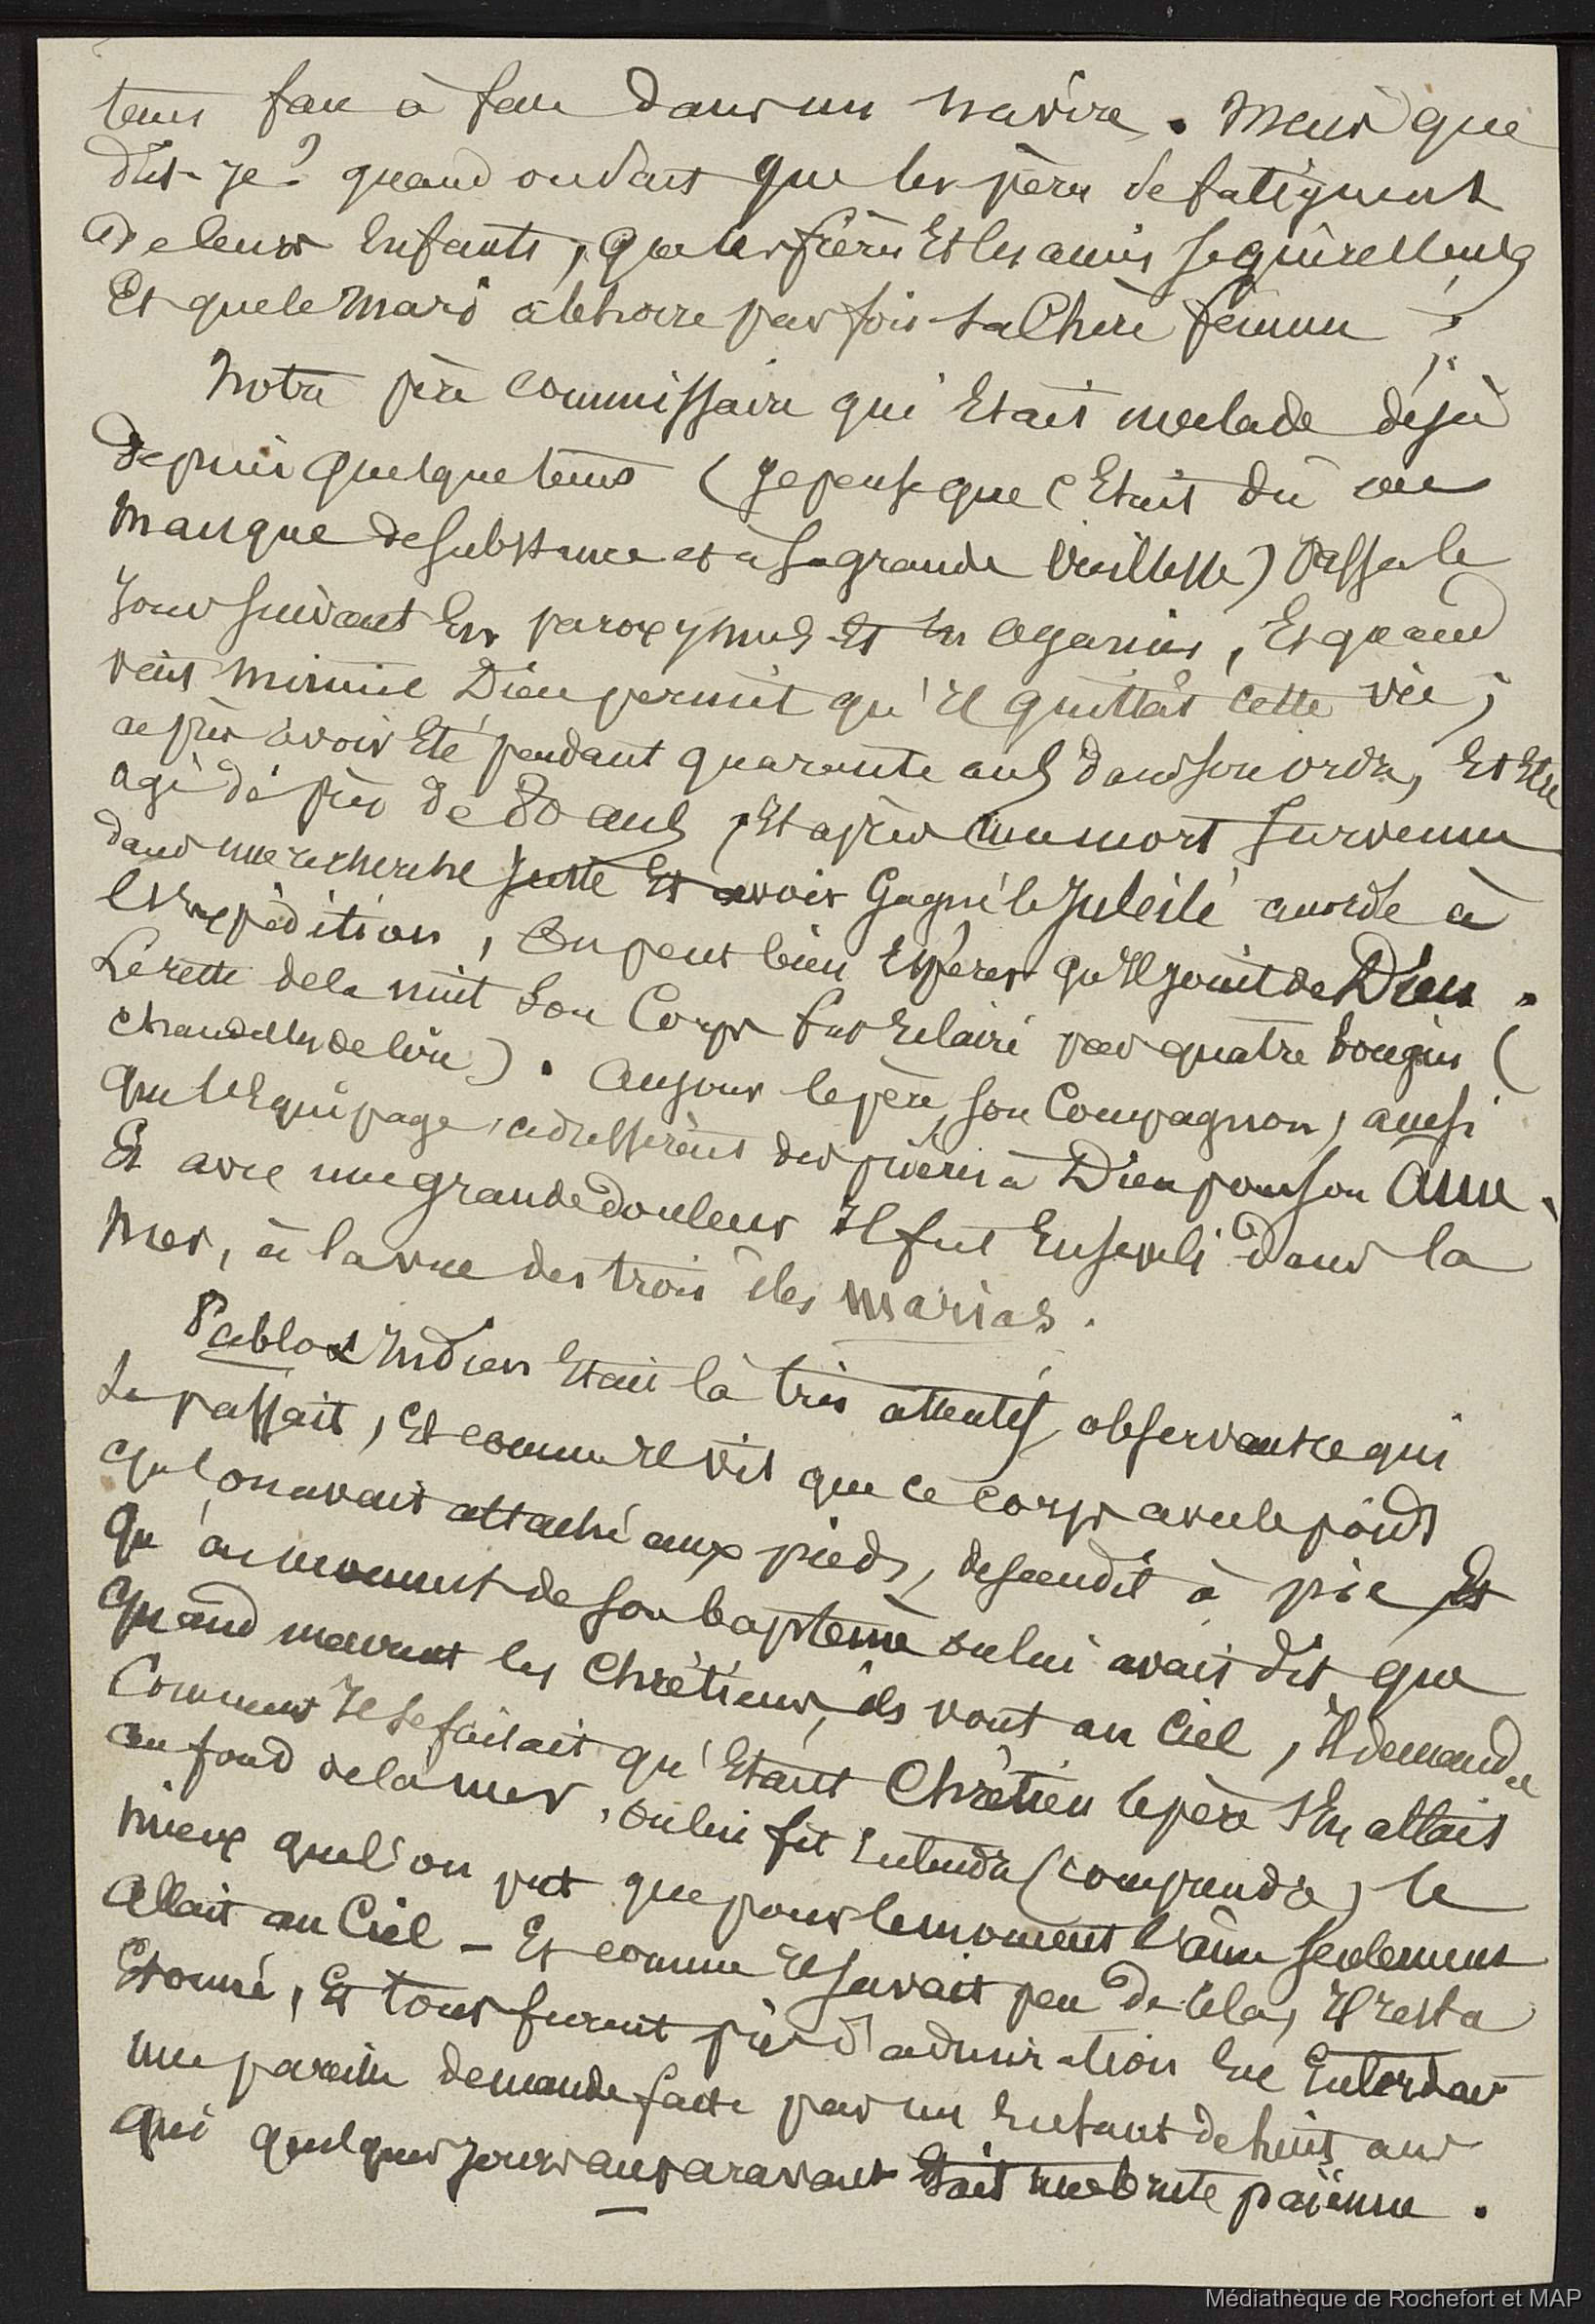 tems face à face dans un navire. Mais que
dis-je? quand on sait que les pères se fatiguent
de leurs Enfants, que les frères Et les amis se querellent,
Et que le Mari abhorre par fois sa Chère femme;
Notre père Commissaire qui Etait malade déjà
depuis quelque tems (je pense que c'Etait dû au
manque de substance et à sa grande vieillesse) passa le
Jour suivant En paroxysmes Et En agonies, Et quand
vint minuit Dieu permit qu'Il quittât cette vie;
après avoir Eté pendant quarante ans dans son ordre, Et Etre
agé de près de 80 ans, Et après une mort survenue
dans une recherche juste Et avoir Gagné le Jubilé accordé à
l'Expédition, On peut bien Espérer qu'Il jouit de Dieu.
Le reste de la nuit Son Corps fut Eclairé par quatre bougies (
chandelles de cire). Au jour le père, son Compagnon, ainsi
que l'Equipage, adressèrent des prières à Dieu pour son Ame.
Et avec une grande douleur Il fut Enseveli dans la
Mer, à la vue des trois îles Marias.
Pablo Indien Etait là très attentif, observant ce qui
se passait, Et comme Il vit que ce corps avec le poids
que l'on avait attaché aux pieds, descendit à pic Et
qu'au moment de son baptême on lui avait dit que
quand meurent les Chrétiens, ils vont au Ciel, Il demanda
Comment Il se faisait qu'Etant Chrétien le père s'En allait
au fond de la mer, on lui fit Entendre (comprendre) le
mieux que l'on put que pour le moment l'âme seulement
allait au Ciel - Et comme Il savait peu de cela, Il resta
Etonné, Et tous furent pris d'admiration En Entendant
une pareille demande faite par un Enfant de huit ans
qui quelques jours auparavant Etait une brute païenne.
Médiathèque de Rochefort et MAP